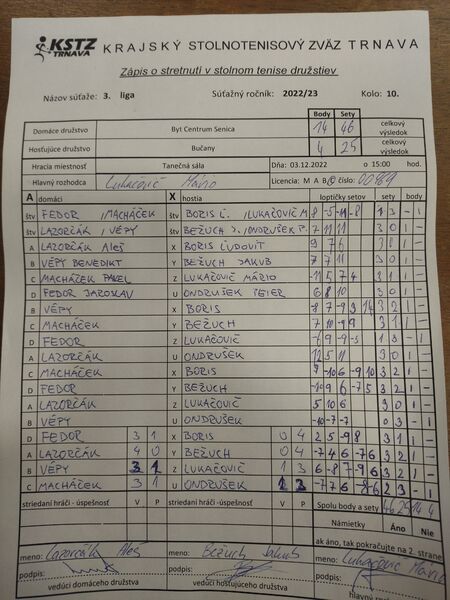 KSTZ TRNAVA KRAJSKÝ STOLNOTENISOVÝ ZVÄZ TRNAVA
Zápis o stretnutí v stolnom tenise družstiev
Názov súťaže: 3. liga Súťažný ročník: 2022/23 Kolo: 10.
Body Sety
Domáce družstvo Byt Centrum Senica 14 46 celkový výsledok
Hosťujúce družstvo Bučany 4 25 celkový výsledok
Hracia miestnosť Tanečná sála Dňa: 03.12.2022 o 15:00 hod.
Hlavný rozhodca Lukačovič Mário Licencia: M A B C číslo: 00989
A domáci X hostia loptičky setov sety body
štv FEDOR / MACHÁČEK štv BORIS Ľ. / LUKAČOVIČ M 8 -5 -11 -8 1 3 - 1
štv LAZORČÁK / VÉPY štv BEŽUCH J. / ONDRUŠEK P. 7 11 11 3 0 1 -
A LAZORČÁK Aleš X BORIS ĽUDOVÍT 9 7 6 3 0 1 -
B VÉPY BENEDIKT Y BEŽUCH JAKUB 7 7 11 3 0 1 -
C MACHÁČEK PAVEL Z LUKAČOVIČ MÁRIO -11 5 7 4 3 1 1 -
D FEDOR JAROSLAV U ONDRUŠEK PETER 6 8 10 3 0 1 -
B VÉPY X BORIS -8 7 -9 3 14 3 2 1 -
C MACHÁČEK Y BEŽUCH 7 10 -9 9 3 1 1 -
D FEDOR Z LUKAČOVIČ 1 3 - 1
A LAZORČÁK U ONDRUŠEK 12 5 11 3 0 1 -
C MACHÁČEK X BORIS 3 2 1 -
D FEDOR Y BEŽUCH 3 2 1 -
A LAZORČÁK Z LUKAČOVIČ 5 10 6 3 0 1 -
B VÉPY U ONDRUŠEK -10 -7 -7 0 3 - 1
D FEDOR 3 1 X BORIS 0 4 2 5 -9 8 3 1 1 -
A LAZORČÁK 4 0 Y BEŽUCH 0 4 -7 4 6 -7 6 3 2 1 -
B VÉPY 3 1 Z LUKAČOVIČ 1 3 6 -8 7 -9 6 3 2 1 -
C MACHÁČEK 3 1 U ONDRUŠEK 1 3 2 3 - 1
striedaní hráči - úspešnosť V P striedaní hráči - úspešnosť V P Spolu body a sety 46 25 14 4
Námietky Áno Nie
ak áno, tak pokračujte na 2. strane
meno: Lazorčák Aleš meno: Bežuch Jakub meno: Lukačovič Mário
podpis: podpis: podpis:
vedúci domáceho družstva vedúci hosťujúceho družstva hlavný